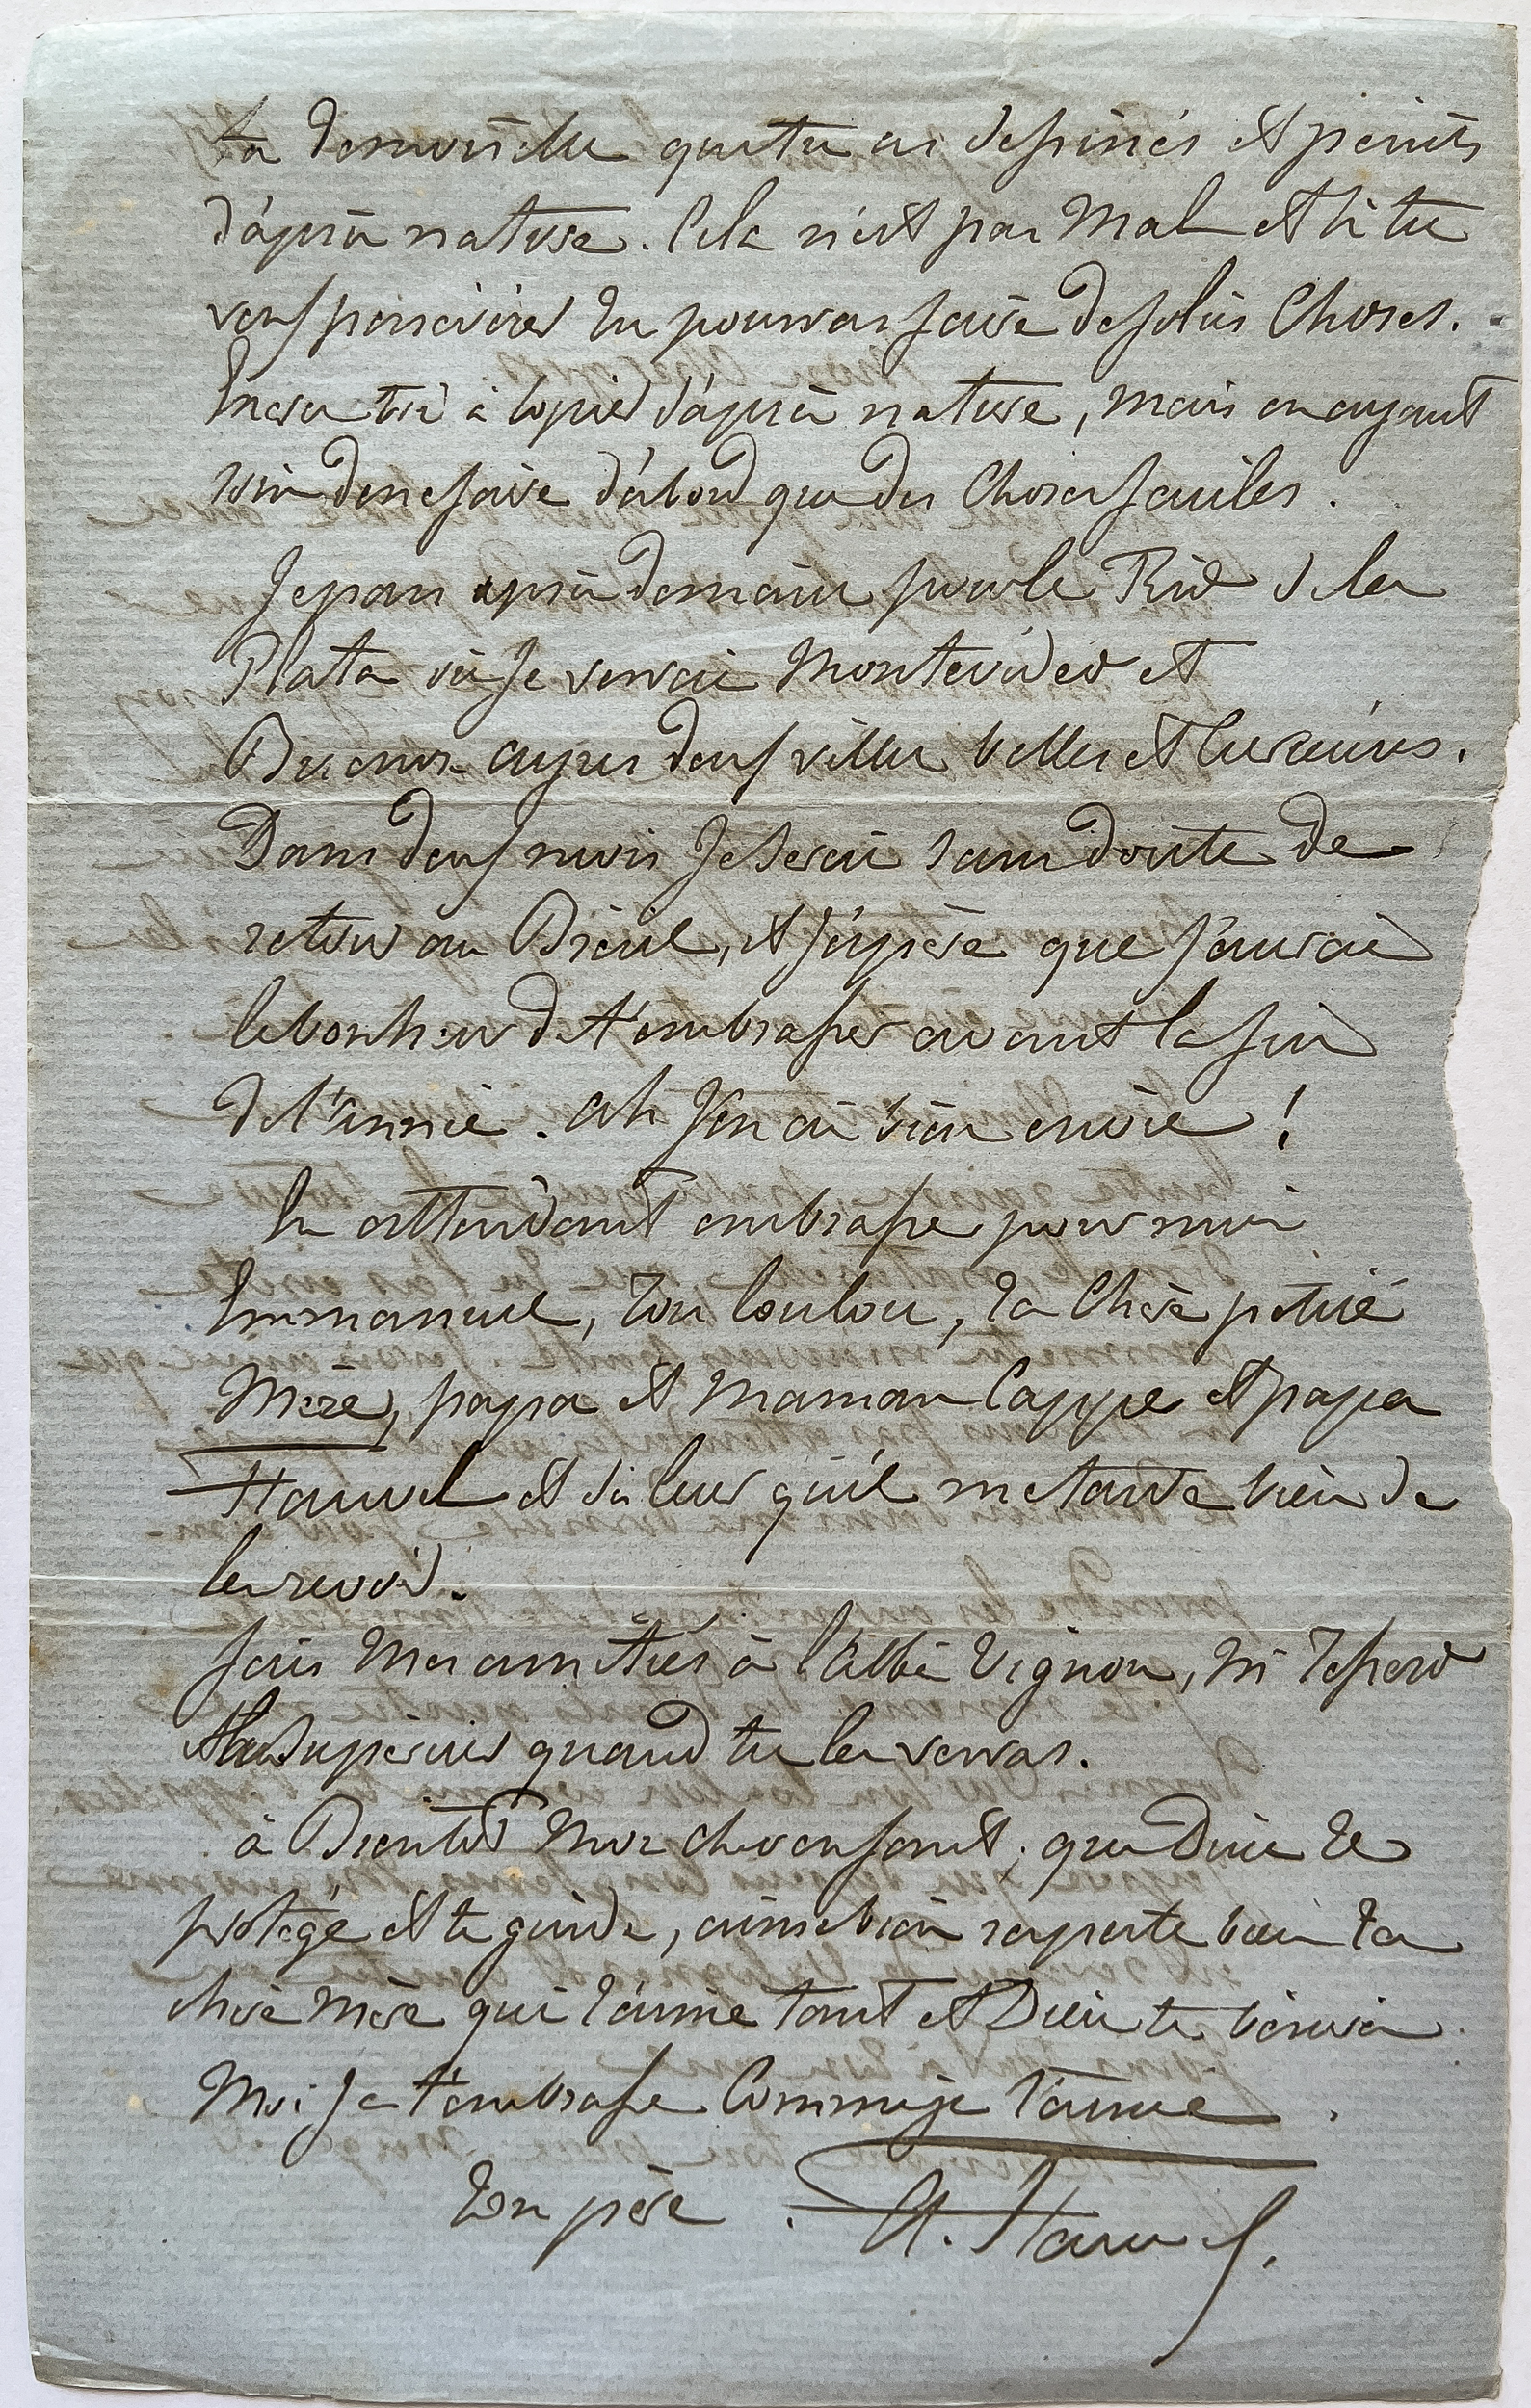 ta demoiselle que tu as dessinés et peints
d'après nature. Cela n'est pas mal et si tu
veux persévérer tu pourras faire de jolies choses.
Exerce toi à copier d'après nature, mais en ayant
soin de ne faire d'abord que des choses faciles.
Je pars après demain pour le Rio de la
Plata où je verrai Montevideo et
Buenos-ayres deux villes belles et curieuses.
Dans deux mois je serai sans doute de
retour au Brésil, et j'espère que j'aurai
le bonheur de t'embrasser avant la fin
de l'année. ah j'en ai bien envie !
En attendant embrasse pour moi
Emmanuel, ton loulou, ta chère petite
Mère, papa et maman Cappe et papa
Hamel et dis leur qu'il me tarde bien de
les revoir.
fais mes amitiés à l'abbé Vignon, Mr
Supérieur quand tu les verras.
à Bientôt mon cher enfant, que Dieu te
protège et te guide, aime bien respecte bien ta
chère mère qui t'aime tant et Dieu te bénira
Moi je t'embrasse comme je t'aime.
ton père. A. Hamel.